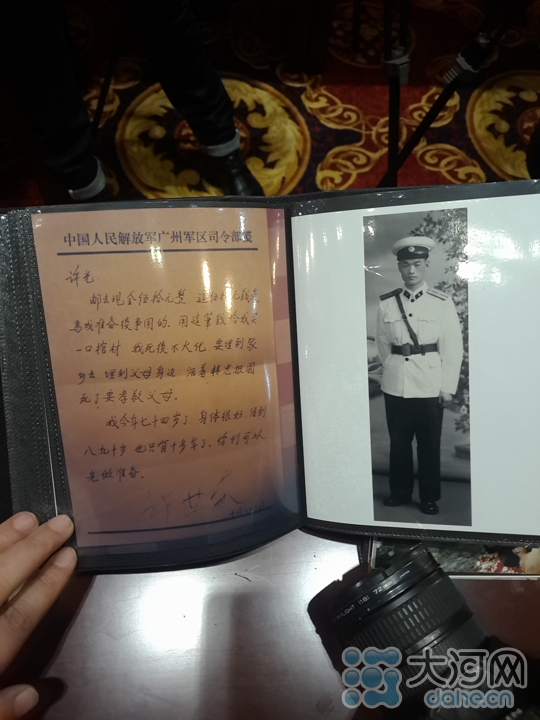 中国人民解放军广州军区司令部笺
许光
邮去现金伍拾元整 这伍拾元钱是
为我准备後事用的 用这笔钱给我买
一口棺材 我死後不火化 要埋到家
乡去 埋到父母身边 活着精忠报国
死了要孝敬父母。
我今年七十四岁了 身体很好 活到
八九十岁 也只有十多年了、你们可以
先做准备。
许世友
大河网
dahe.cn